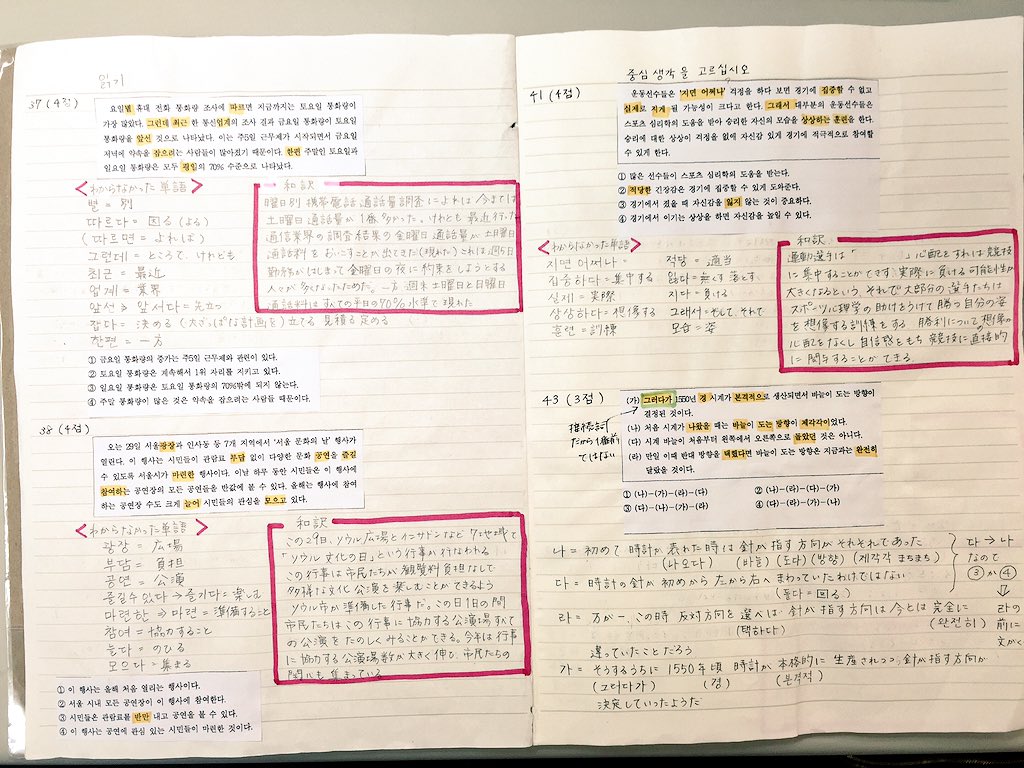 읽기
37 (4점)
요일별 휴대 전화 통화량 조사에 따르면 지금까지는 토요일 통화량이
가장 많았다. 그런데 최근 한 통신업계의 조사 결과 금요일 통화량이 토요일
통화량을 앞선 것으로 나타났다. 이는 주5일 근무제가 시작되면서 금요일
저녁에 약속을 잡으려는 사람들이 많아졌기 때문이다. 한편 주말인 토요일과
일요일 통화량은 모두 평일의 70% 수준으로 나타났다.
<わからなかった単語>
별 = 別
따르다 = 因る (よる)
(따르면 = よれば)
그런데 = ところで、けれども
최근 = 最近
업계 = 業界
앞선 ⇒ 앞서다 = 先立つ
잡다 = 決める (大ざっぱな計画を)立てる 見積る 定める
한편 = 一方
和訳
曜日別 携帯電話 通話量調査によれば 今までは
土曜日 通話量が 1番 多かった。けれども 最近 行った
通信業界の調査結果の金曜日 通話量が 土曜日
通話料を おいこすことが 出てきた(現れた) これは 週5日
勤務が はじまって 金曜日の夜に 約束をしようとする
人々が 多くなったためだ。一方 週末 土曜日と日曜日
通話料は すべての平日の70%水準で 現れた
① 금요일 통화량의 증가는 주5일 근무제와 관련이 있다.
② 토요일 통화량은 계속해서 1위 자리를 지키고 있다.
③ 일요일 통화량은 토요일 통화량의 70%밖에 되지 않는다.
④ 주말 통화량이 많은 것은 약속을 잡으려는 사람들 때문이다.
38 (4점)
오는 29일 서울광장과 인사동 등 7개 지역에서 '서울 문화의 날' 행사가
열린다. 이 행사는 시민들이 관람료 부담 없이 다양한 문화 공연을 즐길
수 있도록 서울시가 마련한 행사이다. 이날 하루 동안 시민들은 이 행사에
참여하는 공연장의 모든 공연들을 반값에 볼 수 있다. 올해는 행사에 참여
하는 공연장 수도 크게 늘어 시민들의 관심을 모으고 있다.
<わからなかった単語>
광장 = 広場
부담 = 負担
공연 = 公演
즐길수 있다 → 즐기다 = 楽しむ
마련한 ⇒ 마련 = 準備すること
참여 = 協力すること
늘다 = のびる
모으다 = 集まる
和訳
この29日、ソウル広場とインサドンなど 7地域で
「ソウル 文化の日」という行事が 行なわれる
この行事は 市民たちが 観覧料 負担なしで
多様な文化 公演を 楽しむことができるよう
ソウル市が 準備した行事だ。この日 1日の間
市民たちは この行事に 協力する公演場すべて
の公演を たのしくみることができる。今年は 行事
に 協力する 公演場数が 大きく 伸び、市民たちの
関心も 集まっている
① 이 행사는 올해 처음 열리는 행사이다.
② 서울 시내 모든 공연장이 이 행사에 참여한다.
③ 시민들은 관람료를 반만 내고 공연을 볼 수 있다.
④ 이 행사는 공연에 관심 있는 시민들이 마련한 것이다.
중심 생각을 고르십시오
41 (4점)
운동선수들은 '지면 어쩌나' 걱정을 하다 보면 경기에 집중할 수 없고
실제로 지게 될 가능성이 크다고 한다. 그래서 대부분의 운동선수들은
스포츠 심리학의 도움을 받아 승리한 자신의 모습을 상상하는 훈련을 한다.
승리에 대한 상상이 걱정을 없애고 자신감 있게 경기에 적극적으로 참여할
수 있게 한다.
① 많은 선수들이 스포츠 심리학의 도움을 받는다.
② 적당한 긴장감은 경기에 집중할 수 있게 도와준다.
③ 경기에서 졌을 때 자신감을 잃지 않는 것이 중요하다.
④ 경기에서 이기는 상상을 하면 자신감을 높일 수 있다.
<わからなかった単語>
지면 어쩌나 =
집중하다 = 集中する
실제 = 実際
상상하다 = 想像する
훈련 = 訓練
적당 = 適当
잃다 = 無くす 落とす
지다 = 負ける
그래서 = そして、それで
모습 = 姿
和訳
運動選手は「 」心配をすれば 競技
に 集中することができず、実際に 負ける 可能性が
大きくなるという。それで 大部分の 選手たちは
スポーツ心理学の 助けをうけて 勝つ 自分の姿
を 想像する 訓練をする。勝利について 想像が
心配をなくし 自信感をもち 競技に 直接的
に 関与することができる。
43 (3점)
(가) 그러다가 1550년 경 시계가 본격적으로 생산되면서 바늘이 도는 방향이
결정된 것이다.
(나) 처음 시계가 나왔을 때는 바늘이 도는 방향이 제각각이었다.
(다) 시계 바늘이 처음부터 왼쪽에서 오른쪽으로 돌았던 것은 아니다.
(라) 만일 이때 반대 방향을 택했다면 바늘이 도는 방향은 지금과는 완전히
달랐을 것이다.
接続詞
だから1番前
ではない
① (나)-(가)-(라)-(다)
② (나)-(라)-(다)-(가)
③ (다)-(나)-(가)-(라)
④ (다)-(라)-(가)-(나)
나 = 初めて 時計が 表れた時は 針が 指す方向が それぞれであった
(나오다) (바늘) (도다) (방향) (제각각 まちまち)
다 = 時計の針が 初めから 左から右へ まわっていたわけではない
(돌다 = 回る)
다 → 나
なので
③ か ④
라 = 万が一、この時 反対方向を 選べば 針が 指す方向は 今とは 完全に
(택하다) (완전히)
違っていたことだろう
라の
前に
文がく
가 = そうするうちに 1550年頃 時計が 本格的に 生産されつつ 針が指す方向が
(그러다가) (경) (본격적)
決定していったようだ